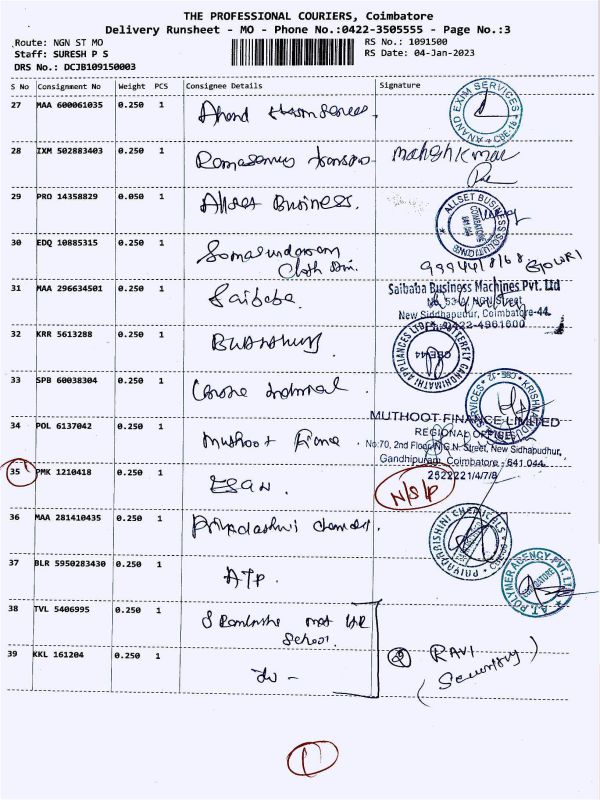 THE PROFESSIONAL COURIERS, Coimbatore
Delivery Runsheet - MO - Phone No.:0422-3505555 - Page No.:3
Route: NGN ST MO
RS No.: 1091500
Staff: SURESH P S
RS Date: 04-Jan-2023
DRS No.: DCJB109150003
S No Consignment No Weight PCS Consignee Details Signature
27 MAA 600061035 0.250 1 Anand
ANAND EXIM SERVICES * CBE-18 *
28 IXM 502883403 0.250 1 Mahesh Kumar
29 PRO 14358829 0.050 1 Allset Business.
ALLSET BUSINESS SOLUTIONS * COIMBATORE 641 044
30 EDQ 10885315 0.250 1 Somasundaram
Cloth
GOWRI
31 MAA 296634501 0.250 1 Saibaba
Saibaba Business Machines Pvt. Ltd
NGN Street
New Siddhapudur, Coimbatore-44.
0422-4961600
32 KRR 5613288 0.250 1 Butterfly
BUTTERFLY GANDHIMATHI APPLIANCES LTD. CBE-44
33 SPB 60038304 0.250 1
34 POL 6137042 0.250 1 Muthoot Finance.
MUTHOOT FINANCE LIMITED
REGIONAL OFFICE
No:70, 2nd Floor, N.G.N. Street, New Sidhapudhur,
Gandhipuram, Coimbatore - 641 044.
2522221/4/7/8
35 PMK 1210418 0.250 1 N/S/P
36 MAA 281410435 0.250 1 Priyadarshini Chemicals.
PRIYADARISHINI CHEMICALS
37 BLR 5950283430 0.250 1 ATP.
A.T. POLYMER AGENCY PVT. LTD COIMBATORE
38 TVL 5406995 0.250 1 S Ramakrishna mat HR
School.
39 KKL 161204 0.250 1 Do -
RAVI
(Security)
1